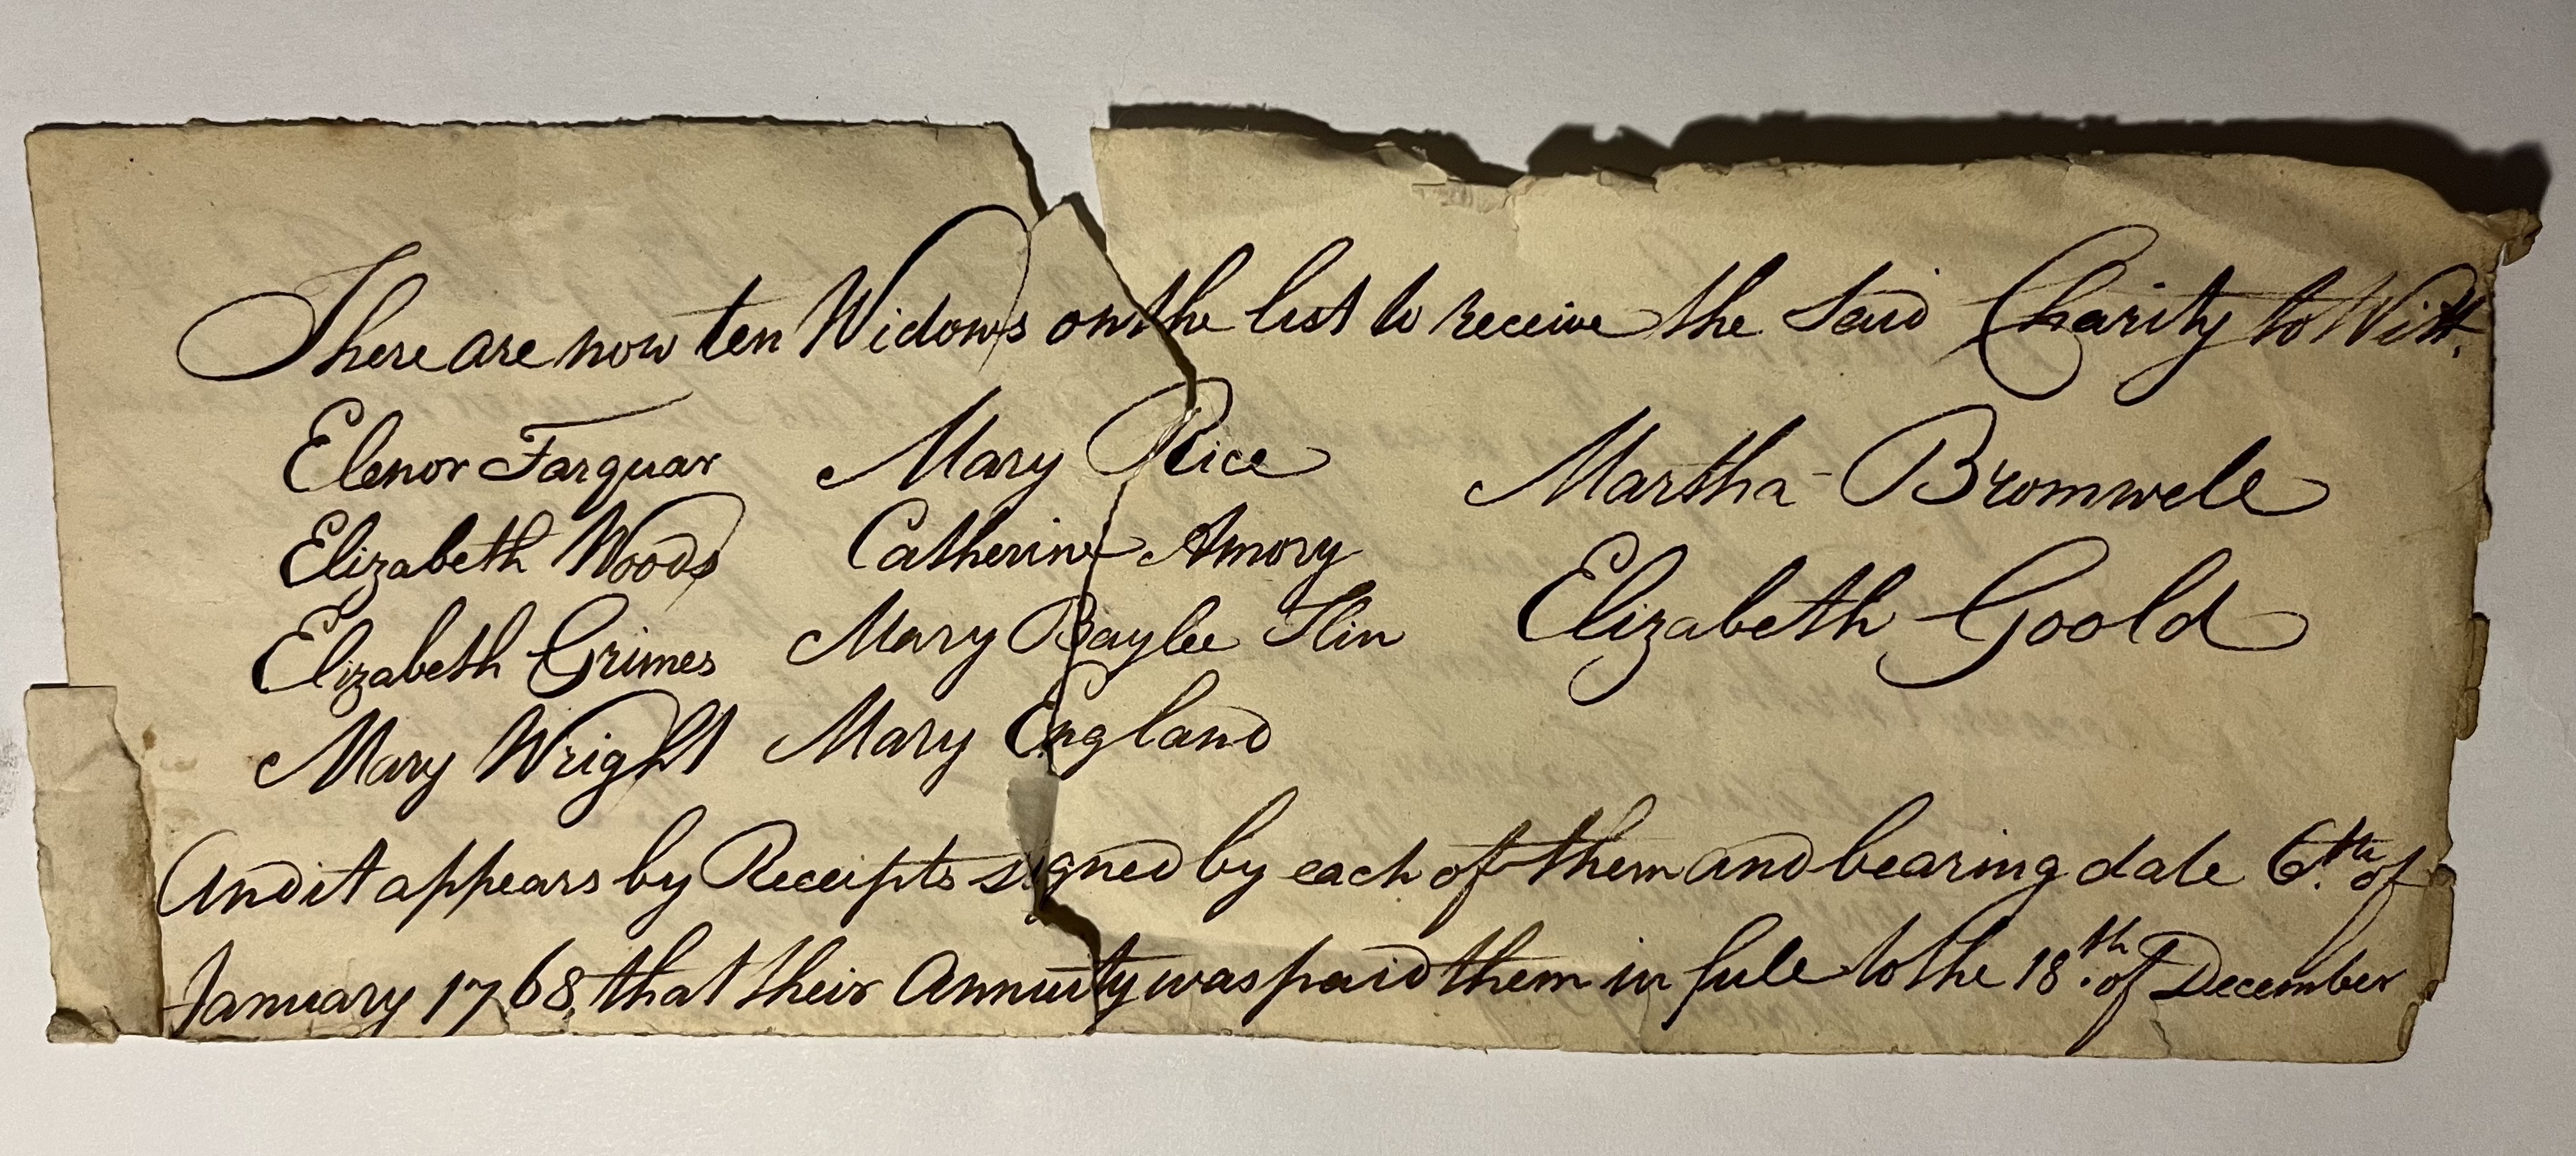 There are now ten Widows on the list to receive the said Charity to Witt.
Elenor Farquar Mary Rice Martha Bromwele
Elizabeth Woods Catherine Amory Elizabeth Goold
Elizabeth Grimes Mary Baylee
Mary Wright Mary England
And it appears by Receipts signed by each of them and bearing date 6th. of
January 1768, that their Annuity was paid them in full to the 18th. of December